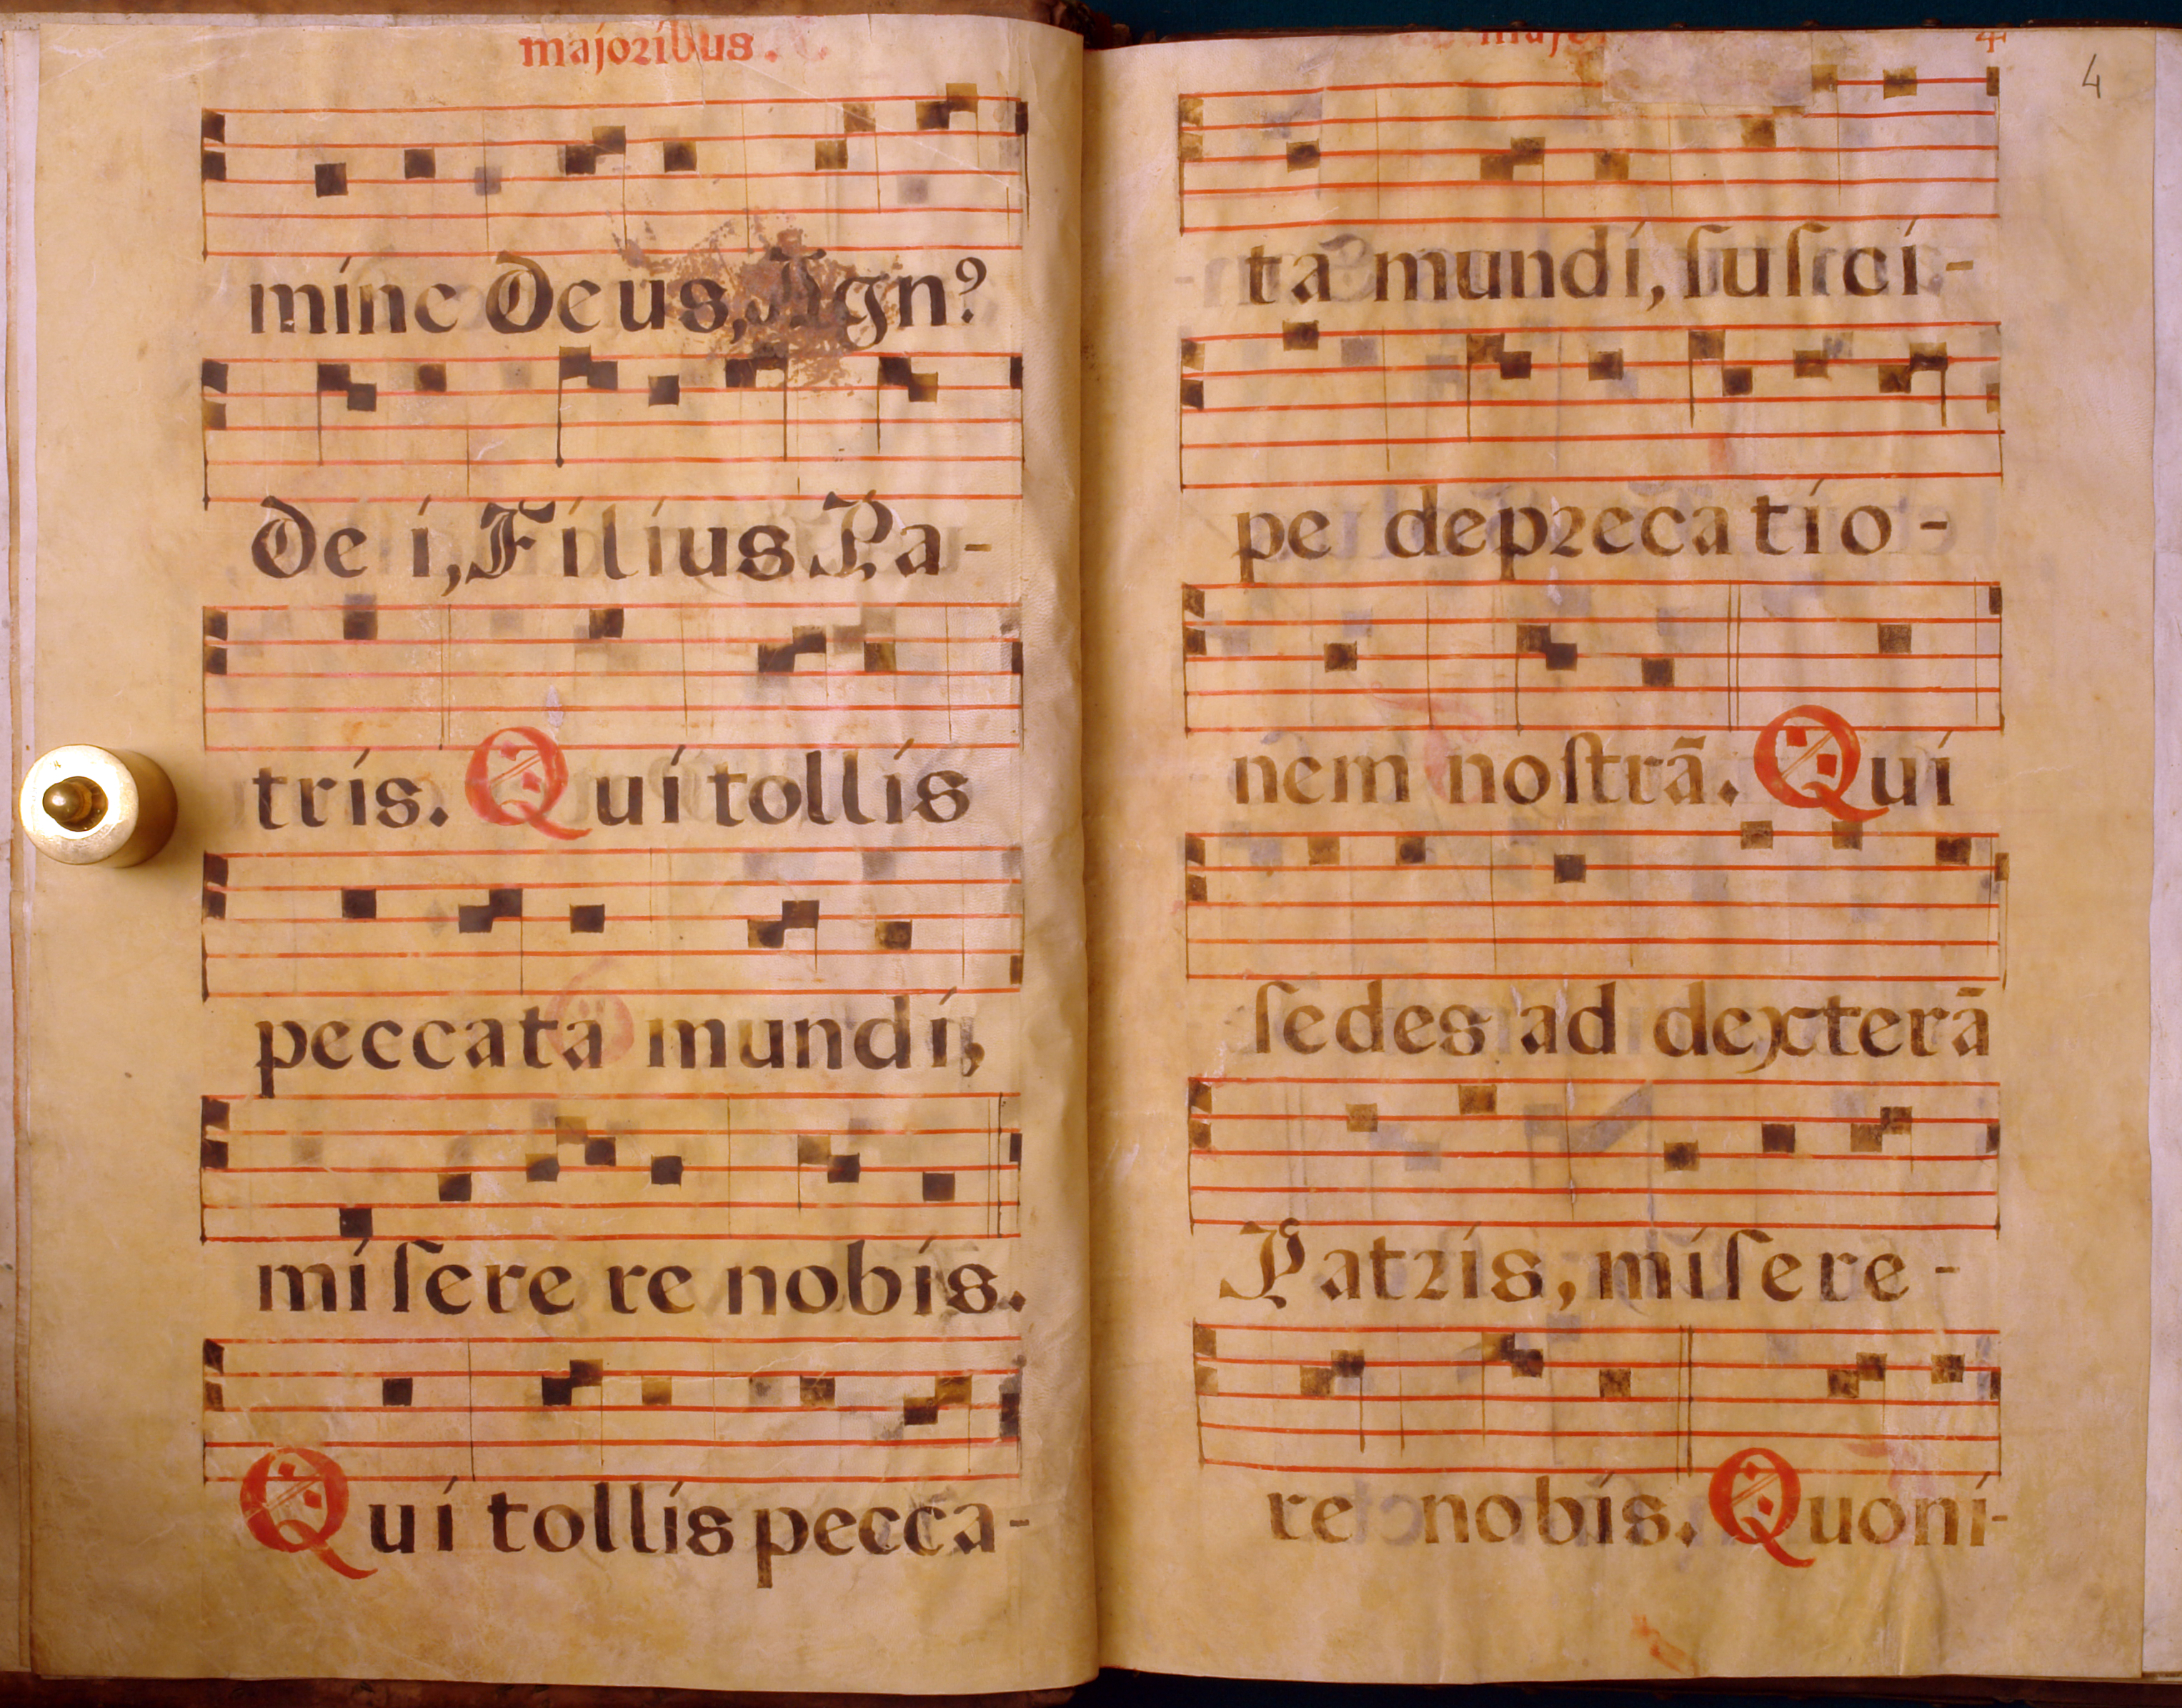 majoribus.
mine Deus, Agnꝰ
Dei, Filius Pa-
tris. Qui tollis
peccata mundi,
miſerere nobis.
Qui tollis pecca-
4
4
ta mundi, ſuſci-
pe deprecatio-
nem noſtrã. Qui
ſedes ad dexterã
Patris, miſere-
re nobis. Quoni-